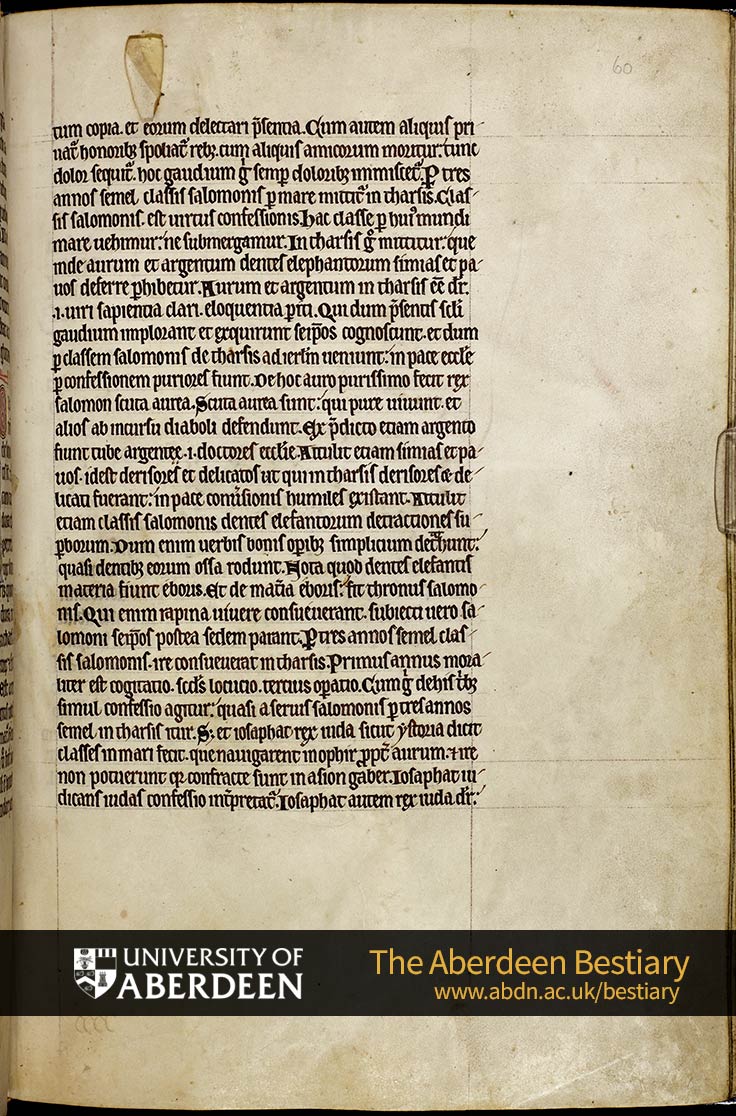 60
tum copia. et eorum delectari p̄sentia. Cum autem aliquis pri-
uat᷑ honorib; spoliat᷑ reb;. cum aliquis amicorum moritur: tunc
dolor sequit᷑. hoc gaudium g̊ semꝑ dolorib; immiscet᷑. Ꝑ tres
annos semel classis salomonis ꝑ mare mittit᷑ in tharsis. Clas-
sis salomonis. est uirtus confessionis. hac classe ꝑ hui᷒ mundi
mare uehimur: ne submergamur. In tharsis g̊ mittitur: que
inde aurum et argentum dentes elephantorum simias et pa-
uos deferre ꝑhibetur. Aurum et argentum in tharsis ee᷑ dr᷑.
.i. uiri sapientia clari. eloquentia ꝑiti. Qui dum p̄sentis scl̄i
gaudium implorant et exquirunt seip̄os cognoscunt. et dum
ꝑ classem salomonis de tharsis ad ierl̄m ueniunt: in pace eccl̄e
ꝑ confessionem puriores fiunt. De hoc auro purissimo fecit rex
salomon scuta aurea. Scuta aurea sunt: qui pure uiuunt. et
alios ab incursu diaboli defendunt. Ex p̄dicto etiam argento
fiunt tube argentee .i. doctores eccl̄ie. Attulit etiam simias et pa-
uos. id est derisores et delicatos ut qui in tharsis derisores & de-
licati fuerant: in pace conu᷑sionis humiles existant. Attulit
etiam classis salomonis dentes elefantorum detractiones su-
ꝑborum. Dum enim uerbis bonis oꝑib; simplicium detrahunt:
quasi dentib; eorum ossa rodunt. Nota quod dentes elefantis
materia fiunt eboris. Et de mat᷑ia eboris: fit thronus salomo-
nis. Qui enim rapina uiuere consueuerant. subiecti uero sa-
lomoni seip̄os postea sedem parant. Ꝑ tres annos semel clas-
sis salomonis. ire consueuerat in tharsis. Primus annus mora-
liter est cogitatio. scd̄s locucio. tertius oꝑatio. Cum g̊ de his trib;
simul confessio agitur: quasi a seruis salomonis ꝑ tres annos
semel in tharsis itur. S; et iosaphat rex iuda sicut ystoria dicit
classes in mari fecit. que nauigarent in ophir ꝓpt᷑ aurum. & ire
non potuerunt qꝛ confracte sunt in asion gaber. Iosaphat iu-
dicans iudas confessio int᷑pretat᷑. Iosaphat autem rex iuda dr᷑:
UNIVERSITY OF
ABERDEEN
The Aberdeen Bestiary
www.abdn.ac.uk/bestiary